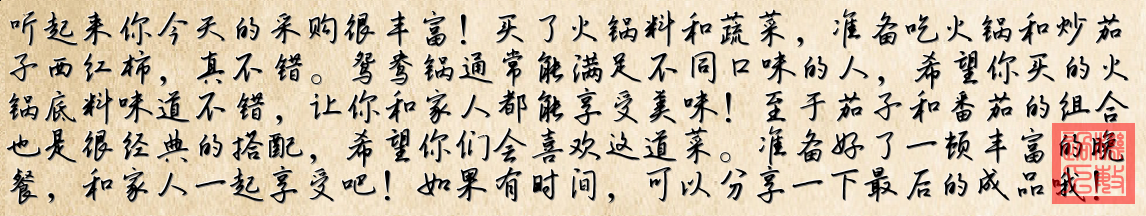 听起来你今天的采购很丰富！买了火锅料和蔬菜，准备吃火锅和炒茄
子西红柿，真不错。鸳鸯锅通常能满足不同口味的人，希望你买的火
锅底料味道不错，让你和家人都能享受美味！至于茄子和番茄的组合
也是很经典的搭配，希望你们会喜欢这道菜。准备好了一顿丰富的晚
餐，和家人一起享受吧！如果有时间，可以分享一下最后的成品哦！